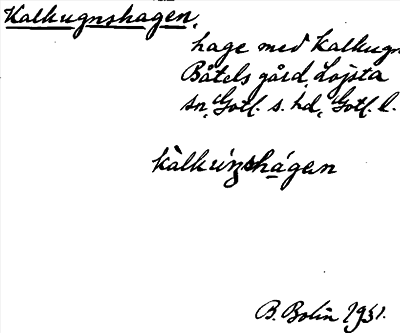 Kalkugnshagen,
hage med kalkugn
Båtels gård, Lojsta
sn, Gotl. s. hd, Gotl. l.
kàlkúnshágen
B. Bolin 1931.